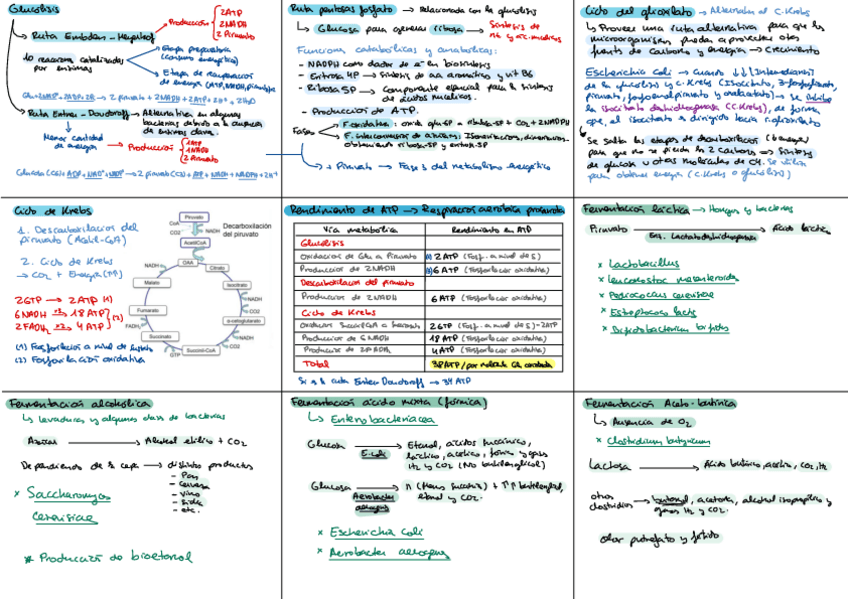 Glucólisis
Ruta Embden-Meyerhof → Producción
2ATP
2NADH
2 Piruvato
10 reacciones catalizadas por enzimas
Etapa preparatoria (consumo energético)
Etapa de recuperación de energía (ATP, NADH, piruvato)
Ruta Entner-Doudoroff → Alternativa en algunas bacterias debido a la ausencia de enzimas clave.
Menor cantidad de energía → Producción
1ATP
1NADH
2 Piruvato
Ruta pentosas fosfato → Relacionada con la glucólisis
Glucosa para generar ribosa → Síntesis de
Funciones catabólicas y anabólicas:
- NADPH como dador de e- en biosíntesis
- Eritrosa 4P → síntesis de aa aromáticos y vit B6
- Ribosa 5P → Componente esencial para la síntesis de ácidos nucleicos.
- Producción de ATP
Fases
F. oxidativa:
+ Piruvato → Fase 3 del metabolismo energético
Ciclo del glioxilato → Alternativa al C. Krebs
Provee una ruta alternativa para que los microorganismos puedan aprovechar otras fuente de carbono y energía → crecimiento
Escherichia Coli → Cuando ↓↓ [Intermediarios] de la glucólisis y C. Krebs (Isocitrato, 3-fosfoglicerato, piruvato, fosfoenolpiruvato y oxalacetato) → se inhibe la isocitrato deshidrogenasa (C. Krebs), de forma que, el isocitrato es dirigido hacia r. glioxilato
Se salta las etapas de descarboxilación
para que no se pierda los 2 carbonos → Síntesis de glucosa y otras moléculas de CH.
para obtener energía (C. Krebs o glucólisis)
Ciclo de Krebs
1. Descarboxilación del piruvato (Acetil-CoA)
2. Ciclo de Krebs → CO2 + Energía (↑↑)
2GTP → 2ATP (1)
6NADH x3→ 18ATP
2FADH2 x2→ 4ATP
(2)
(1) Fosforilación a nivel de sustrato
(2) Fosforilación oxidativa
Piruvato
CoA
CO2
NADH
AcetilCoA
Decarboxilación del piruvato
OAA
Citrato
Isocitrato
NADH
CO2
α-cetoglutarato
NADH
CO2
Succinil-CoA
GTP
Succinato
FADH2
Fumarato
Malato
NADH
Rendimiento de ATP → Respiración aerobia procariota
Vía metabólica
Rendimiento en ATP
Glucólisis
Oxidación de Glu a Piruvato
2ATP (Fosf. a nivel de S)
Producción de 2NADH
6ATP (Fosforilación oxidativa)
Descarboxilación del piruvato
Producción de 2NADH
6ATP (Fosforilación oxidativa)
Ciclo de Krebs
2GTP (Fosf. a nivel de S) = 2ATP
Producción de 6NADH
18ATP (Fosforilación oxidativa)
Producción de 2FADH2
4ATP (Fosforilación oxidativa)
Total
38ATP/por molécula Glu oxidada
Si es la ruta Entner Doudoroff → 34 ATP
Fermentación láctica → Hongos y bacterias
Piruvato → Ácido láctico
Enz. Lactatodeshidrogenasa
* Lactobacillus
* Leuconostoc mesenteroides
* Pediococcus cerevisiae
* Estreptococo lactis
* Bifidobacterium bifidus
Fermentación alcohólica
Levaduras y algunas clases de bacterias
Azúcar → Alcohol etílico + CO2
Dependiendo de la cepa → distintos productos
- Pan
- Cerveza
- Vino
- Sidra
- etc.
* Saccharomyces cerevisiae
* Producción de bioetanol
Fermentación ácido mixta (fórmica)
Enterobacteriacea
Glucosa → Etanol, ácidos succínico, láctico, acético, fórmico y gases H2 y CO2 (No butilenglicol)
E. coli
Glucosa → ↑ (menos succínico) + ↑↑ butilenglicol, etanol y CO2.
Aerobacter aerogenes
* Escherichia coli
* Aerobacter aerogenes
Fermentación Aceto-butírica
Ausencia de O2
* Clostridium butyricum
Lactosa → Ácido butírico, acético, CO2, H2
Otros clostridios → butanol, acetona, alcohol isopropílico y gases H2 y CO2.
olor putrefacto y fétido